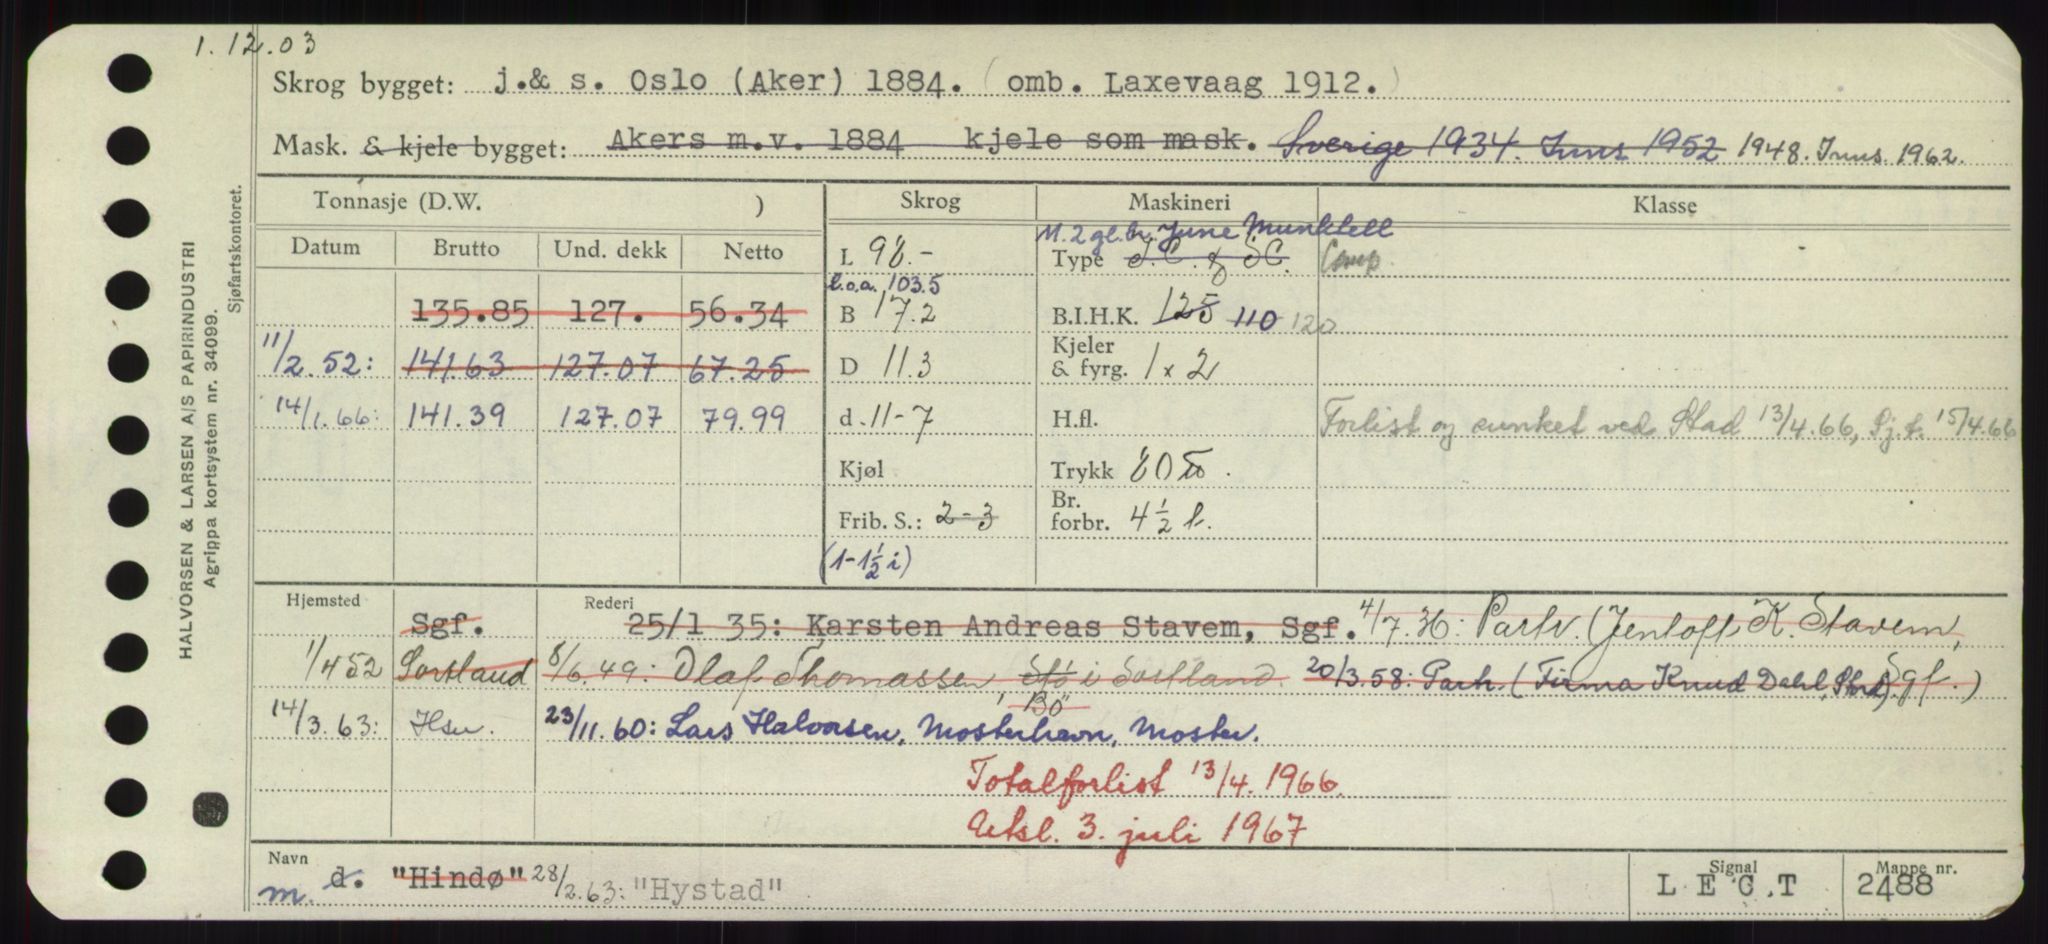 1.12.03
Skrog bygget: j.& s. Oslo (Aker) 1884. (omb. Laxevaag 1912.)
Mask. & kjele bygget: Akers m.v. 1884 kjele som mask. Sverige 1934. Juns 1952 1948. Juns. 1962.
Tonnasje (D.W. ) Skrog Maskineri Klasse
Datum Brutto Und. dekk Netto
M. 2 gl. br. June Munktell
L 98.- Type S.C. & SC. Comp
l.o.a. 103.5
135.85 127. 56.34 B 17.2 B.I.H.K. 125 110 120
11/2.52: 141.63 127.07 67.25 D 11.3 Kjeler & fyrg. 1 x 2
14/1.66: 141.39 127.07 79.99 d. 11-7 H.fl. Forlist og sunket ved Stad 13/4.66, Sj.t. 15/4.66
Kjøl Trykk 80 .
Frib. S.: 2-3 Br. forbr. 4 1/2 t.
(1-1 1/2 i)
Hjemsted Rederi
Sgf. 25/1 35: Karsten Andreas Stavem, Sgf. 4/7.36: Partr. (Jentoft K. Stavem, Sgf.)
1/4 52 Sortland 8/6.49: Olaf Thomassen, Stø i Sortland. 20/3.58: Partr. (Firma Knud Dahl, Stord)
Bö
14/3.63: Hsu. 23/11.60: Lars Halvorsen, Mosterhavn, Moster.
Totalforlist 13/4.1966.
Utsl. 3. juli 1967
Navn Signal Mappe nr.
m. d. "Hindø" 28/2.63: "Hystad" L E C T 2488
HALVORSEN & LARSEN A/S PAPIRINDUSTRI
Agrippa kortsystem nr. 34099.
Sjøfartskontoret.